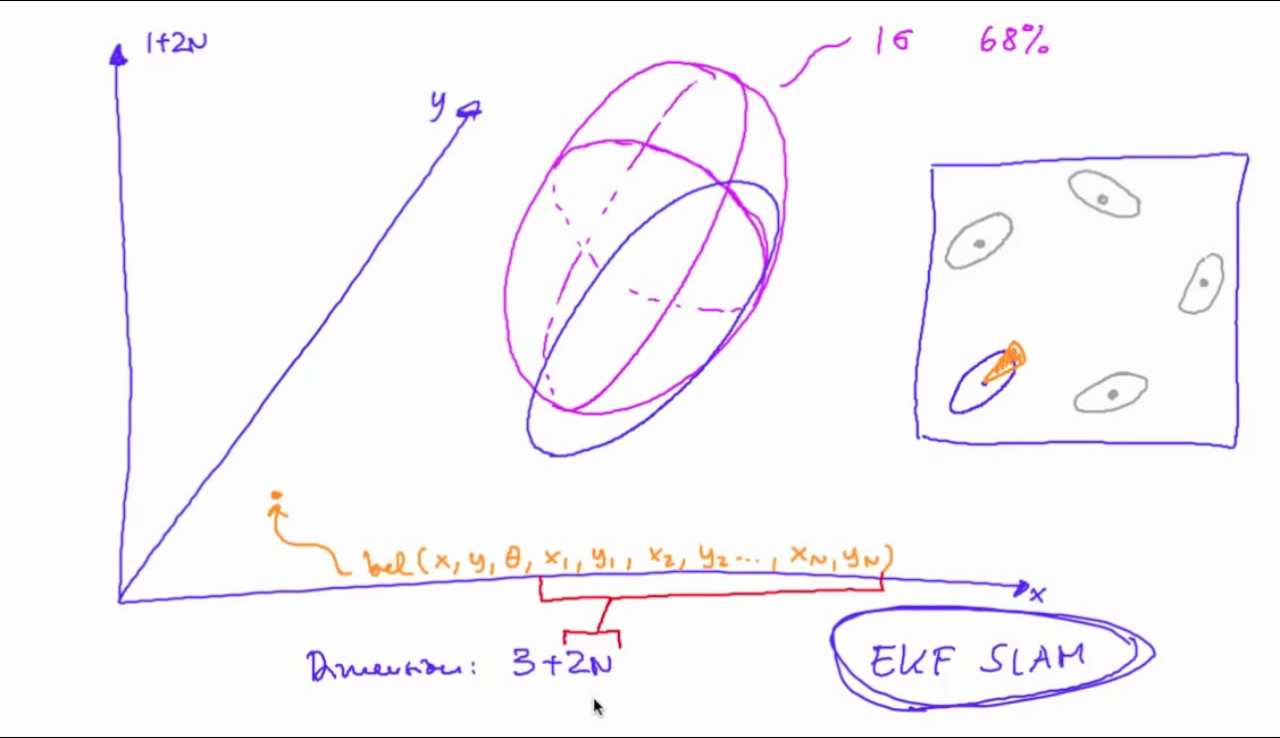 1+2N
y
1σ 68%
bel(x, y, θ, x₁, y₁, x₂, y₂ ..., x_N, y_N)
x
Dimension: 3+2N
EKF SLAM